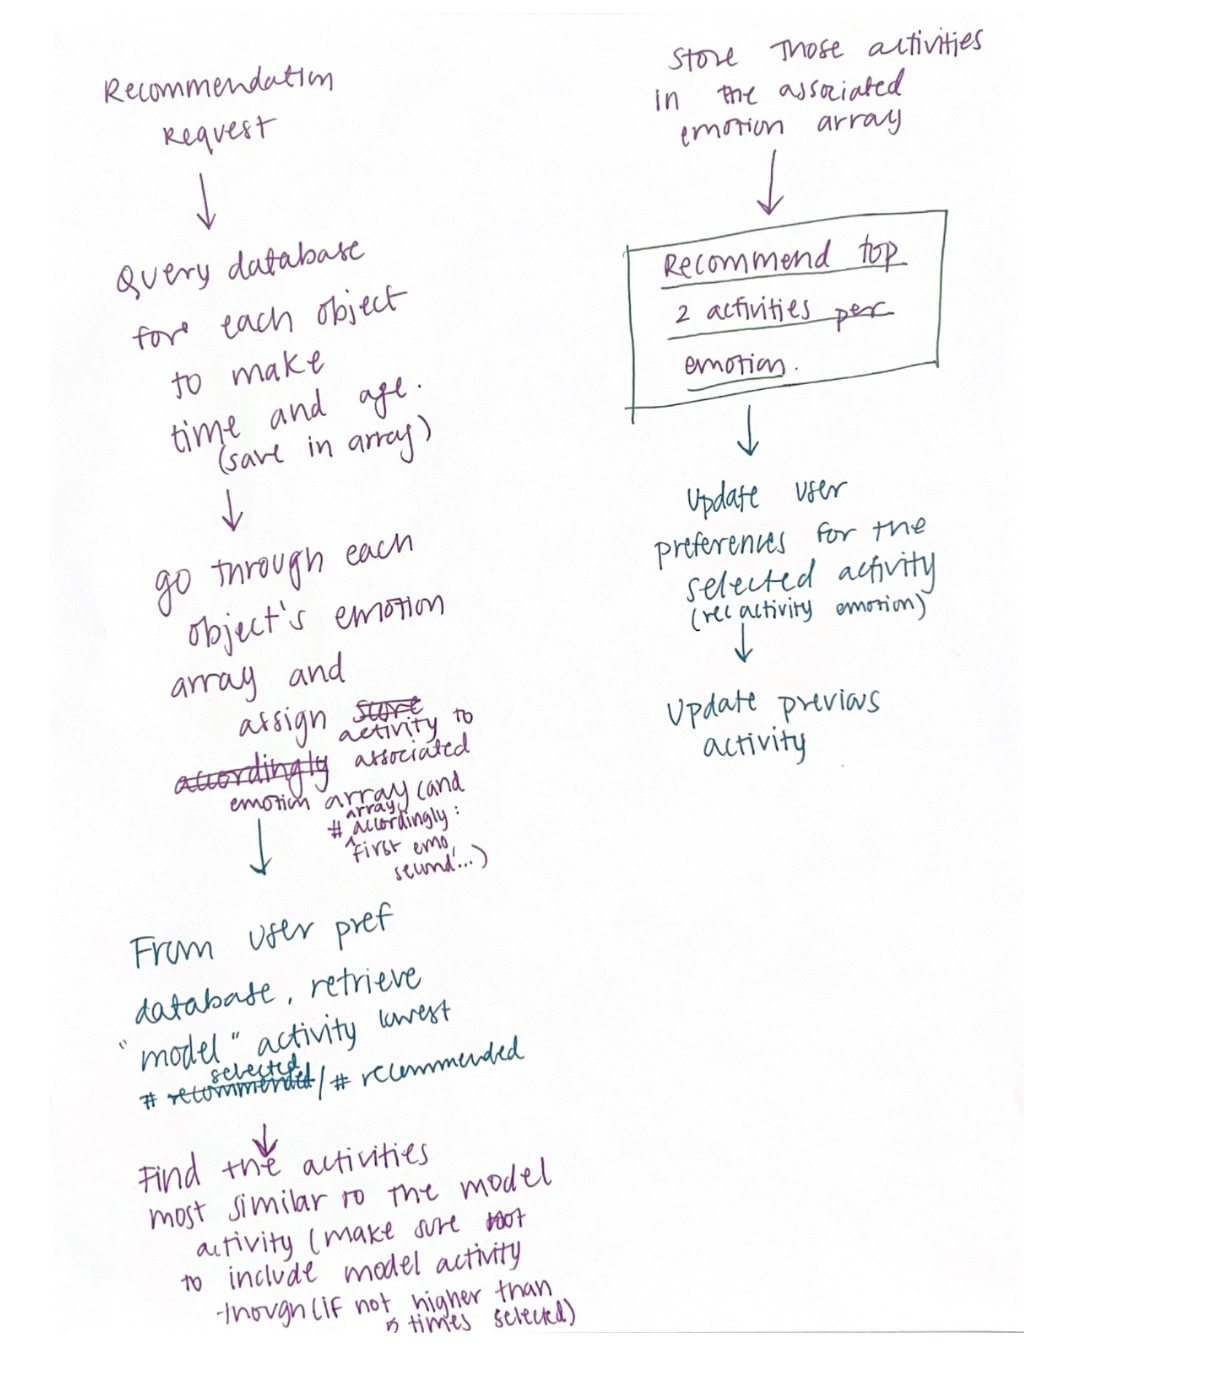 Recommendation
Request
Query database
for each object
to make
time and age.
(save in array)
go through each
object's emotion
array and
assign score
activity to
accordingly associated
emotion array (and
array
# accordingly:
first emo,
second...)
From user pref
database, retrieve
"model" activity lowest
selected
# recommended / # recommended
Find the activities
most similar to the model
activity (make sure not
to include model activity
though (if not higher than
5 times selected)
Store those activities
in the associated
emotion array
Recommend top
2 activities per
emotion.
Update user
preferences for the
selected activity
(rec activity emotion)
Update previous
activity